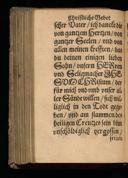 Christliche Gebet
scher Vater / ich dancke dir
von gantzem Hertzen / von
gantzer Seelen / und von
allen meinen krefften / das
du deinen einigen lieben
Sohn / unsern HERRN
und Seligmacher JHE
SUM CHristum / der
für mich und unser al
ler Sünde willen / sich wil
liglich in den Tod gege
ben / und am stammen des
heiligen Creutzes sein
unschüldiglich vergossen /